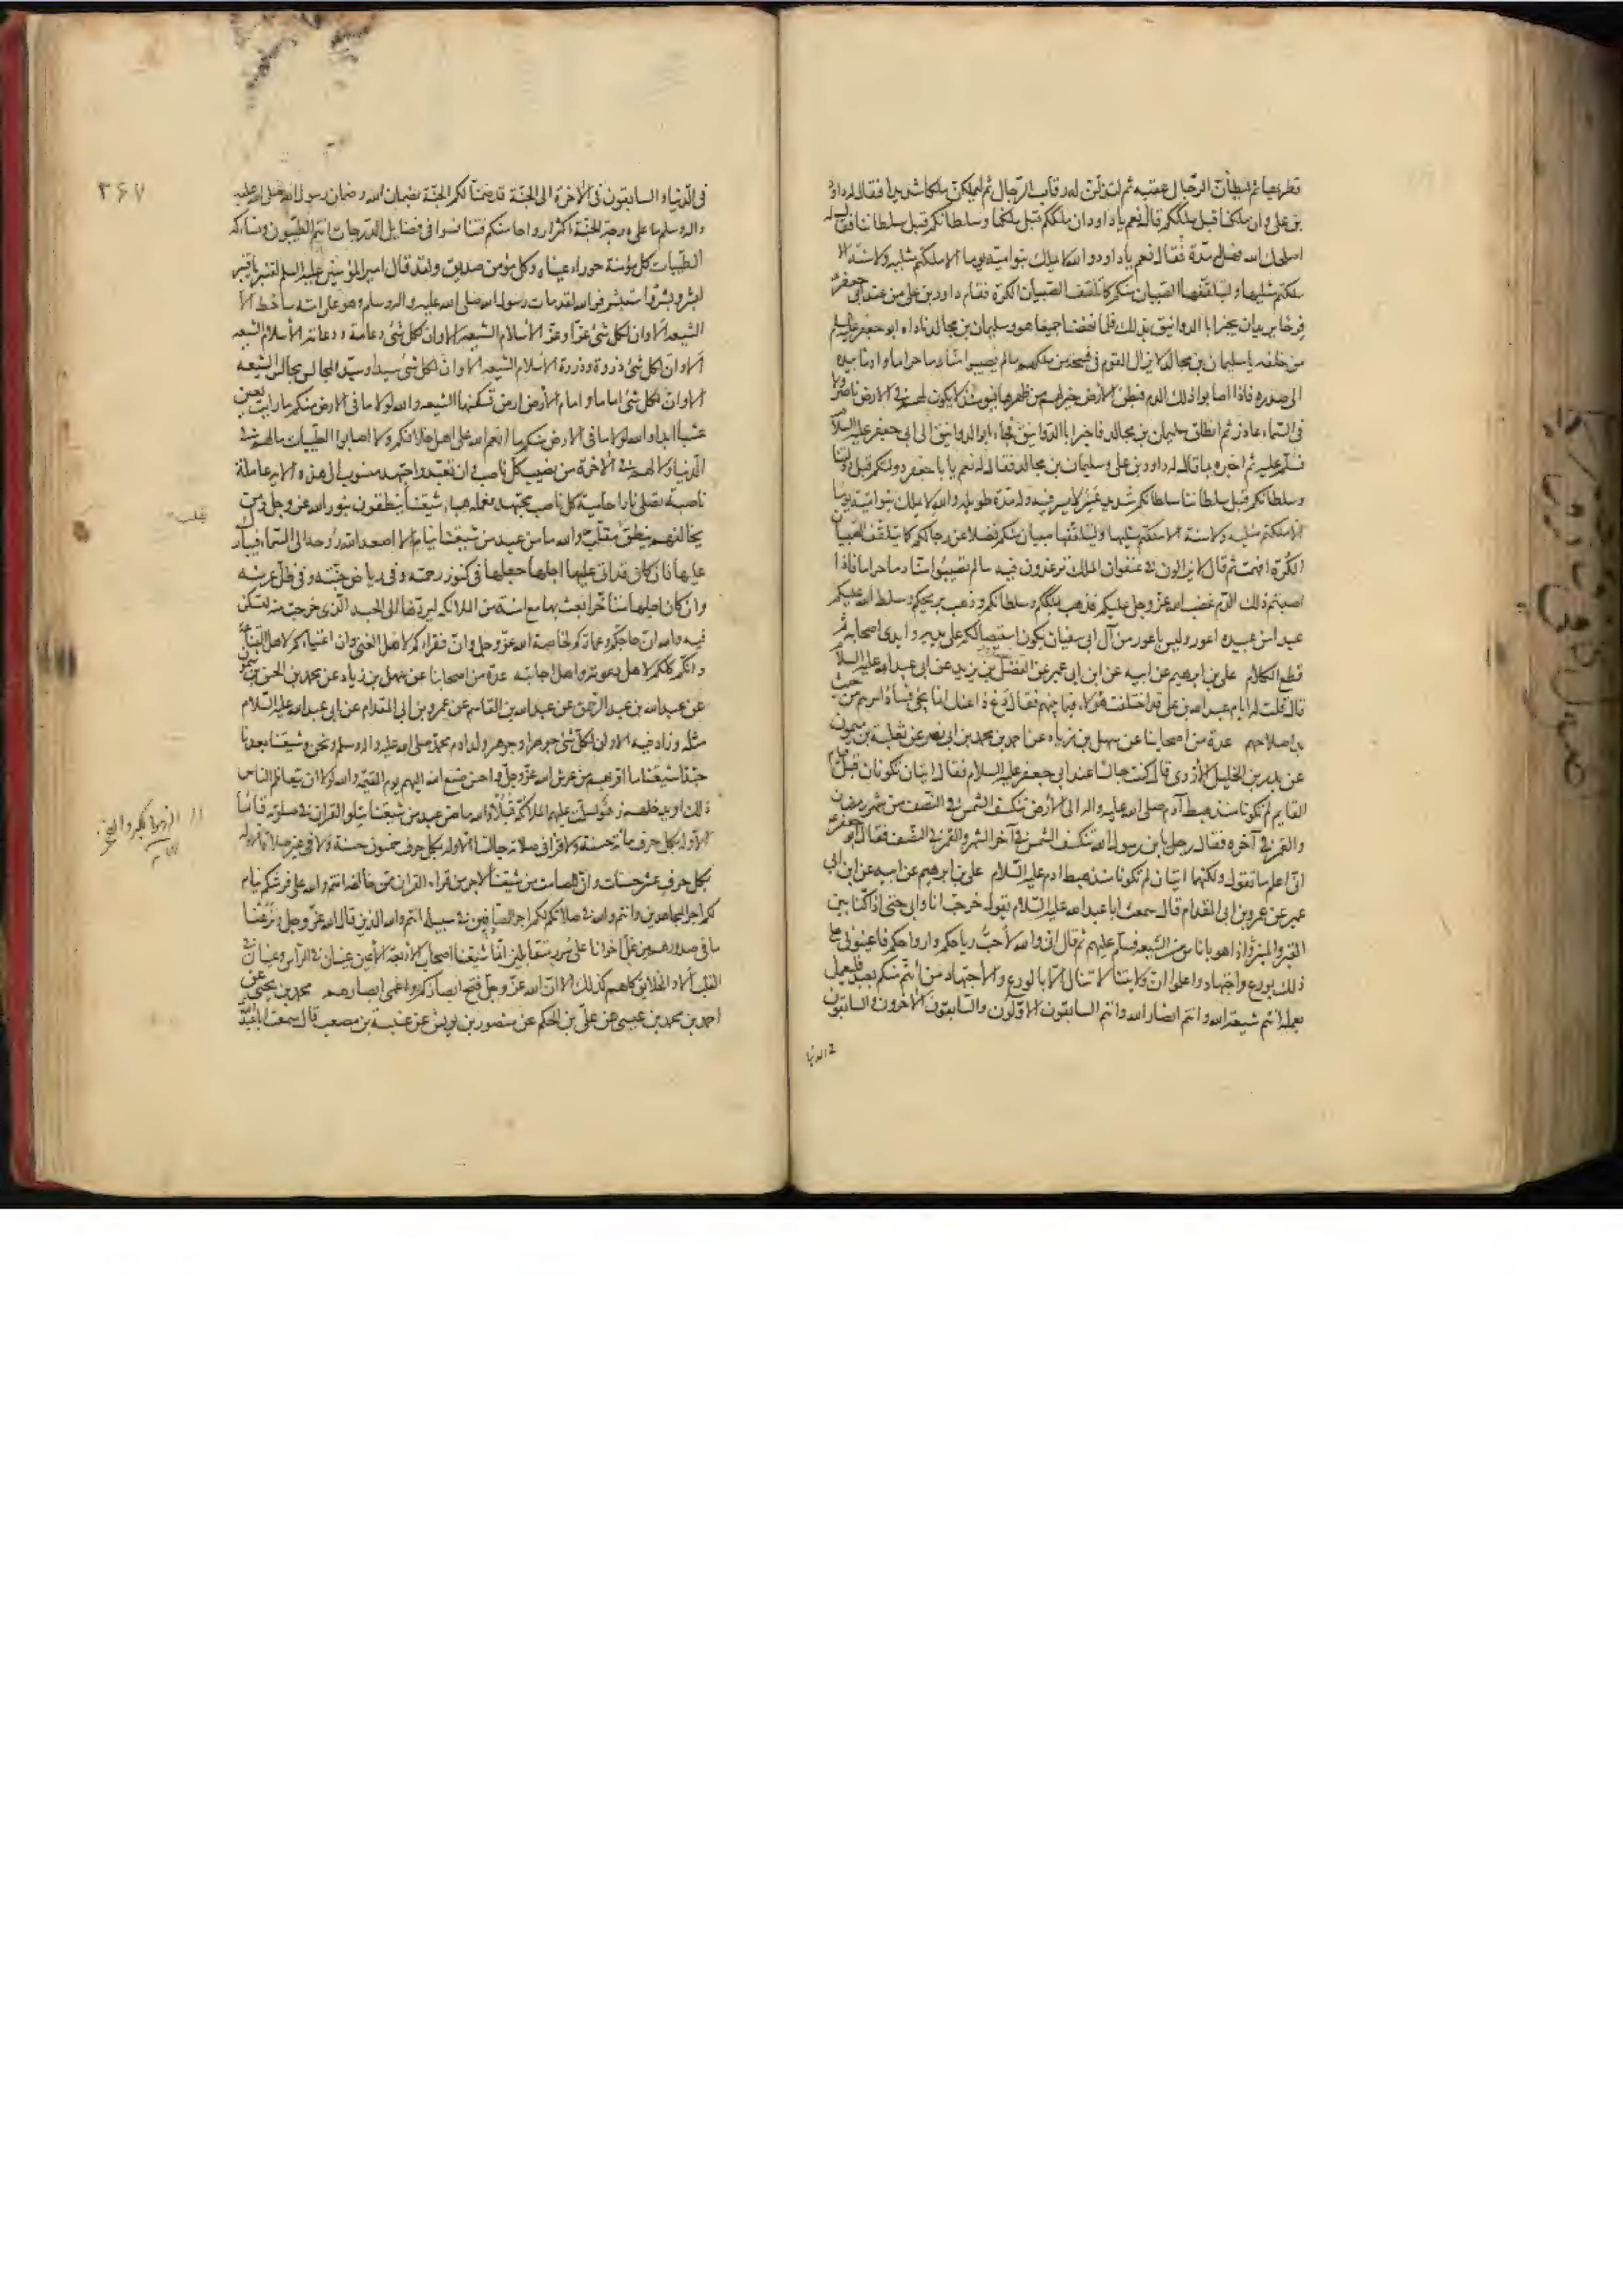 قطريها ثم ليطأن الرجال عقبه ثم لتذلن له رقاب الرجال ثم ليملكن ملكا شديدا فقال له داود
بن علي وان ملكنا قبل ملككم قال نعم يا داود ان ملككم قبل ملكنا وسلطانكم قبل سلطاننا فقال له
اصلحك الله فهل له مدة فقال نعم يا داود والله لا يملك بنوامية يوما الا ملكتم مثليه ولا سنة الا
ملكتم مثليها وليتلقفها الصبيان منكم كما تلقف الصبيان الكرة فقام داود بن علي من عند ابي جعفر
فرحا يريد ان يخبر ابا الدوانيق بذلك فلما نهضا جميعا هو وسليمان بن مجالد ناداه ابو جعفر عليه السلم
من خلفه يا سليمان بن مجالد لا يزال القوم في فسحة من ملكهم ما لم يصيبوا منا دما حراما واومأ بيده
الى صدره فاذا اصابوا ذلك الدم فبطن الأرض خير لهم من ظهرها فيومئذ لا يكون لهم في الارض ناصر ولا
في السماء عاذر ثم انطلق سليمان بن مجالد فاخبر ابا الدوانيق فجاء ابو الدوانيق الى ابي جعفر عليه السلام
فسلم عليه ثم اخبره بما قال له داود بن علي وسليمان بن مجالد فقال له نعم يا با جعفر دولتكم قبل دولتنا
وسلطانكم قبل سلطاننا سلطانكم شديد عسر لا يسر فيه وله مدة طويلة والله لا يملك بنوامية يوما
الا ملكتم مثليه ولا سنة الا ملكتم مثليها وليتلقفها صبيان منكم فضلا عن رجالكم كما يتلقف الصبيان
الكرة افهمت ثم قال لا تزالون في عنفوان الملك ترغدون فيه ما لم تصيبوا منا دما حراما فاذا
اصبتم ذلك الدم غضب الله عز وجل عليكم فذهب بملككم وسلطانكم وذهب بريحكم وسلط الله عليكم
عبدا من عبيده اعور وليس باعور من آل ابي سفيان يكون استيصالكم على يديه وايدى اصحابه ثم
قطع الكلام علي بن ابرهيم عن ابيه عن ابن ابي عمير عن المفضل بن يزيد عن ابي عبد الله عليه السلام
قال قلت له ايام عبد الله بن علي قد اختلف هؤلاء فيما بينهم فقال دع ذا عنك انما يجئ فساد امرهم من حيث
بدا صلاحهم عدة من اصحابنا عن سهل بن زياد عن احمد بن محمد بن ابي نصر عن ثعلبة بن ميمون
عن بدر بن الخليل الأزدى قال كنت جالسا عند ابي جعفر عليه السلام فقال ايتان تكونان قبل قيام
القايم لم تكونا منذ هبط آدم صلى الله عليه واله الى الأرض تنكسف الشمس في النصف من شهر رمضان
والقمر في آخره فقال رجل يابن رسول الله تنكسف الشمس في آخر الشهر والقمر في النصف فقال ابو جعفر
اني اعلم ما تقول ولكنهما ايتان لم تكونا منذ هبط ادم عليه السلام علي بن ابرهيم عن ابيه عن ابن ابي
عمير عن عمرو بن ابي المقدام قال سمعت ابا عبد الله عليه السلام يقول خرجت انا وابي حتى اذا كنا بين
القبر والمنبر اذا هو باناس من الشيعه فسلم عليهم ثم قال اني والله لأحب رياحكم وارواحكم فاعينوني على
ذلك بورع واجتهاد واعلموا ان ولايتنا لا تنال الا بالورع والاجتهاد من ائتم منكم بعبد فليعمل
بعمله انتم شيعة الله وانتم انصار الله وانتم السابقون الأولون والسابقون الأخرون والسابقون
في الدنيا
٣٦٧
في الدنيا والسابقون في الأخرة الى الجنة قد ضمنا لكم الجنة بضمان الله وضمان رسول الله صلى الله عليه
واله وسلم ما على درجة الجنة اكثر ارواحا منكم فتنافسوا في فضايل الدرجات انتم الطيبون ونساؤكم
الطيبات كل مؤمنة حوراء عيناء وكل مؤمن صديق ولقد قال امير المؤمنين عليه السلم لقنبر يا قنبر
ابشر وبشر واستبشر فوالله لقد مات رسول الله صلى الله عليه واله وسلم وهو على امته ساخط الا
الشيعه الا وان لكل شئ عزا وعز الأسلام الشيعه الا وان لكل شئ دعامة ودعامة الأسلام الشيعه
الا وان لكل شئ ذروة وذروة الأسلام الشيعه الا وان لكل شئ سيدا وسيد المجالس مجالس الشيعه
الا وان لكل شئ اماما وامام الأرض ارض تسكنها الشيعه والله لولا ما في الارض منكم ما رأيت بعين
عشبا ابدا والله لولا ما في الارض منكم ما انعم الله على اهل خلافكم ولا اصابوا الطيبات ما لهم في
الدنيا ولا لهم في الأخرة من نصيب كل ناصب وان تعبد واجتهد منسوب الى هذه الاية عاملة
ناصبة تصلى نارا حامية كل ناصب مجتهد فعمله هباء شيعتنا ينطقون بنور الله عز وجل ومن
يخالفهم ينطق بتقلب والله ما من عبد من شيعتنا ينام الا اصعد الله روحه الى السماء فيبارك
عليها فان كان قد اتى عليها اجلها جعلها في كنوز رحمته وفي رياض جنته وفي ظل عرشه
وان كان اجلها متأخرا بعث بها مع امنته من الملائكه ليردها الى الجسد الذي خرجت منه لتسكن
فيه والله ان حاجكم وعماركم لخاصة الله عز وجل وان فقراءكم لأهل الغنى وان اغنياءكم لأهل القناعة
وانكم كلكم لأهل دعوته واهل اجابته عدة من اصحابنا عن سهل بن زياد عن محمد بن الحسن بن شمون
عن عبد الله بن عبد الرحمن عن عبد الله بن القاسم عن عمرو بن ابي المقدام عن ابي عبد الله عليه السلام
مثله وزاد فيه الا وان لكل شئ جوهرا وجوهر ولد ادم محمد صلى الله عليه واله وسلم ونحن وشيعتنا بعدنا
حبذا شيعتنا ما اقربهم من عرش الله عز وجل واحسن صنع الله اليهم يوم القيمة والله لولا ان يتعاظم الناس
ذلك او يدخلهم زهو لسلمت عليهم الملائكة قبلا والله ما من عبد من شيعتنا يتلو القران في صلوته قائما
الا وله بكل حرف مائة حسنة ولا قرأ في صلاته جالسا الا وله بكل حرف خمسون حسنة ولا في غير صلاة الا وله
بكل حرف عشر حسنات وان للصامت من شيعتنا لأجر من قراء القران ممن خالفه انتم والله على فرشكم نيام
لكم اجر المجاهدين وانتم والله في صلاتكم لكم اجر الصافين في سبيله انتم والله الذين قال الله عز وجل ونزعنا
ما في صدورهم من غل اخوانا على سرر متقابلين انما شيعتنا اصحاب الأربعة الأعين عينان في الرأس وعينان في
القلب ألا والخلائق كلهم كذلك الا ان الله عز وجل فتح ابصاركم واعمى ابصارهم محمد بن يحيى عن
احمد بن محمد بن عيسى عن علي بن الحكم عن منصور بن يونس عن عنبسة بن مصعب قال سمعت ابا عبد الله